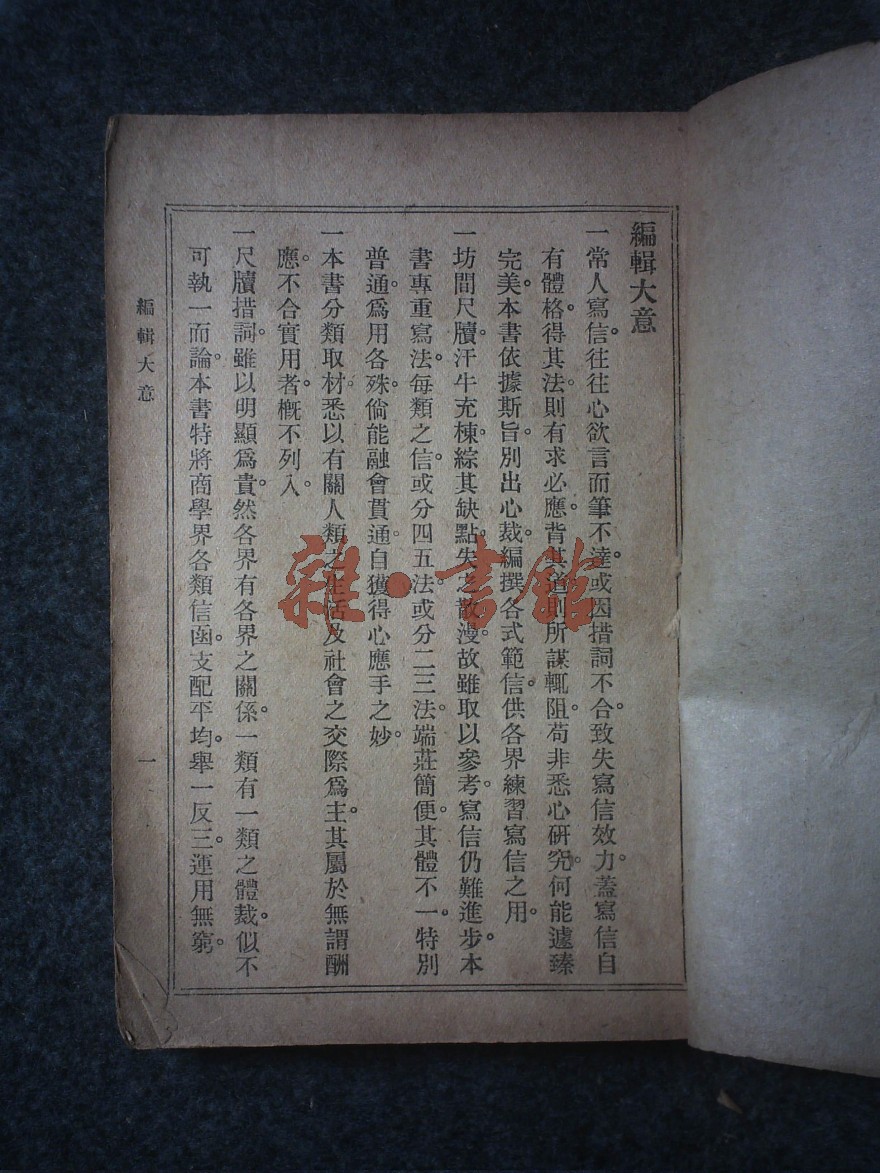 編輯大意
一常人寫信。往往心欲言而筆不達。或因措詞不合。致失寫信效力。蓋寫信自
有體格。得其法。則有求必應。背其道則所謀輒阻。苟非悉心研究。何能遽臻
完美。本書依據斯旨。別出心裁。編撰各式範信。供各界練習寫信之用。
一坊間尺牘。汗牛充棟。綜其缺點。失之散漫。故雖取以參考。寫信仍難進步。本
書專重寫法。每類之信。或分四五法。或分二三法。端莊簡便。其體不一。特別
普通。爲用各殊。倘能融會貫通。自獲得心應手之妙。
一本書分類取材。悉以有關人類之生活及社會之交際爲主。其屬於無謂酬
應。不合實用者。槪不列入。
一尺牘措詞。雖以明顯爲貴。然各界有各界之關係。一類有一類之體裁。似不
可執一而論。本書特將商學界各類信函。支配平均。舉一反三。運用無窮。
編輯大意
一
雜·書館